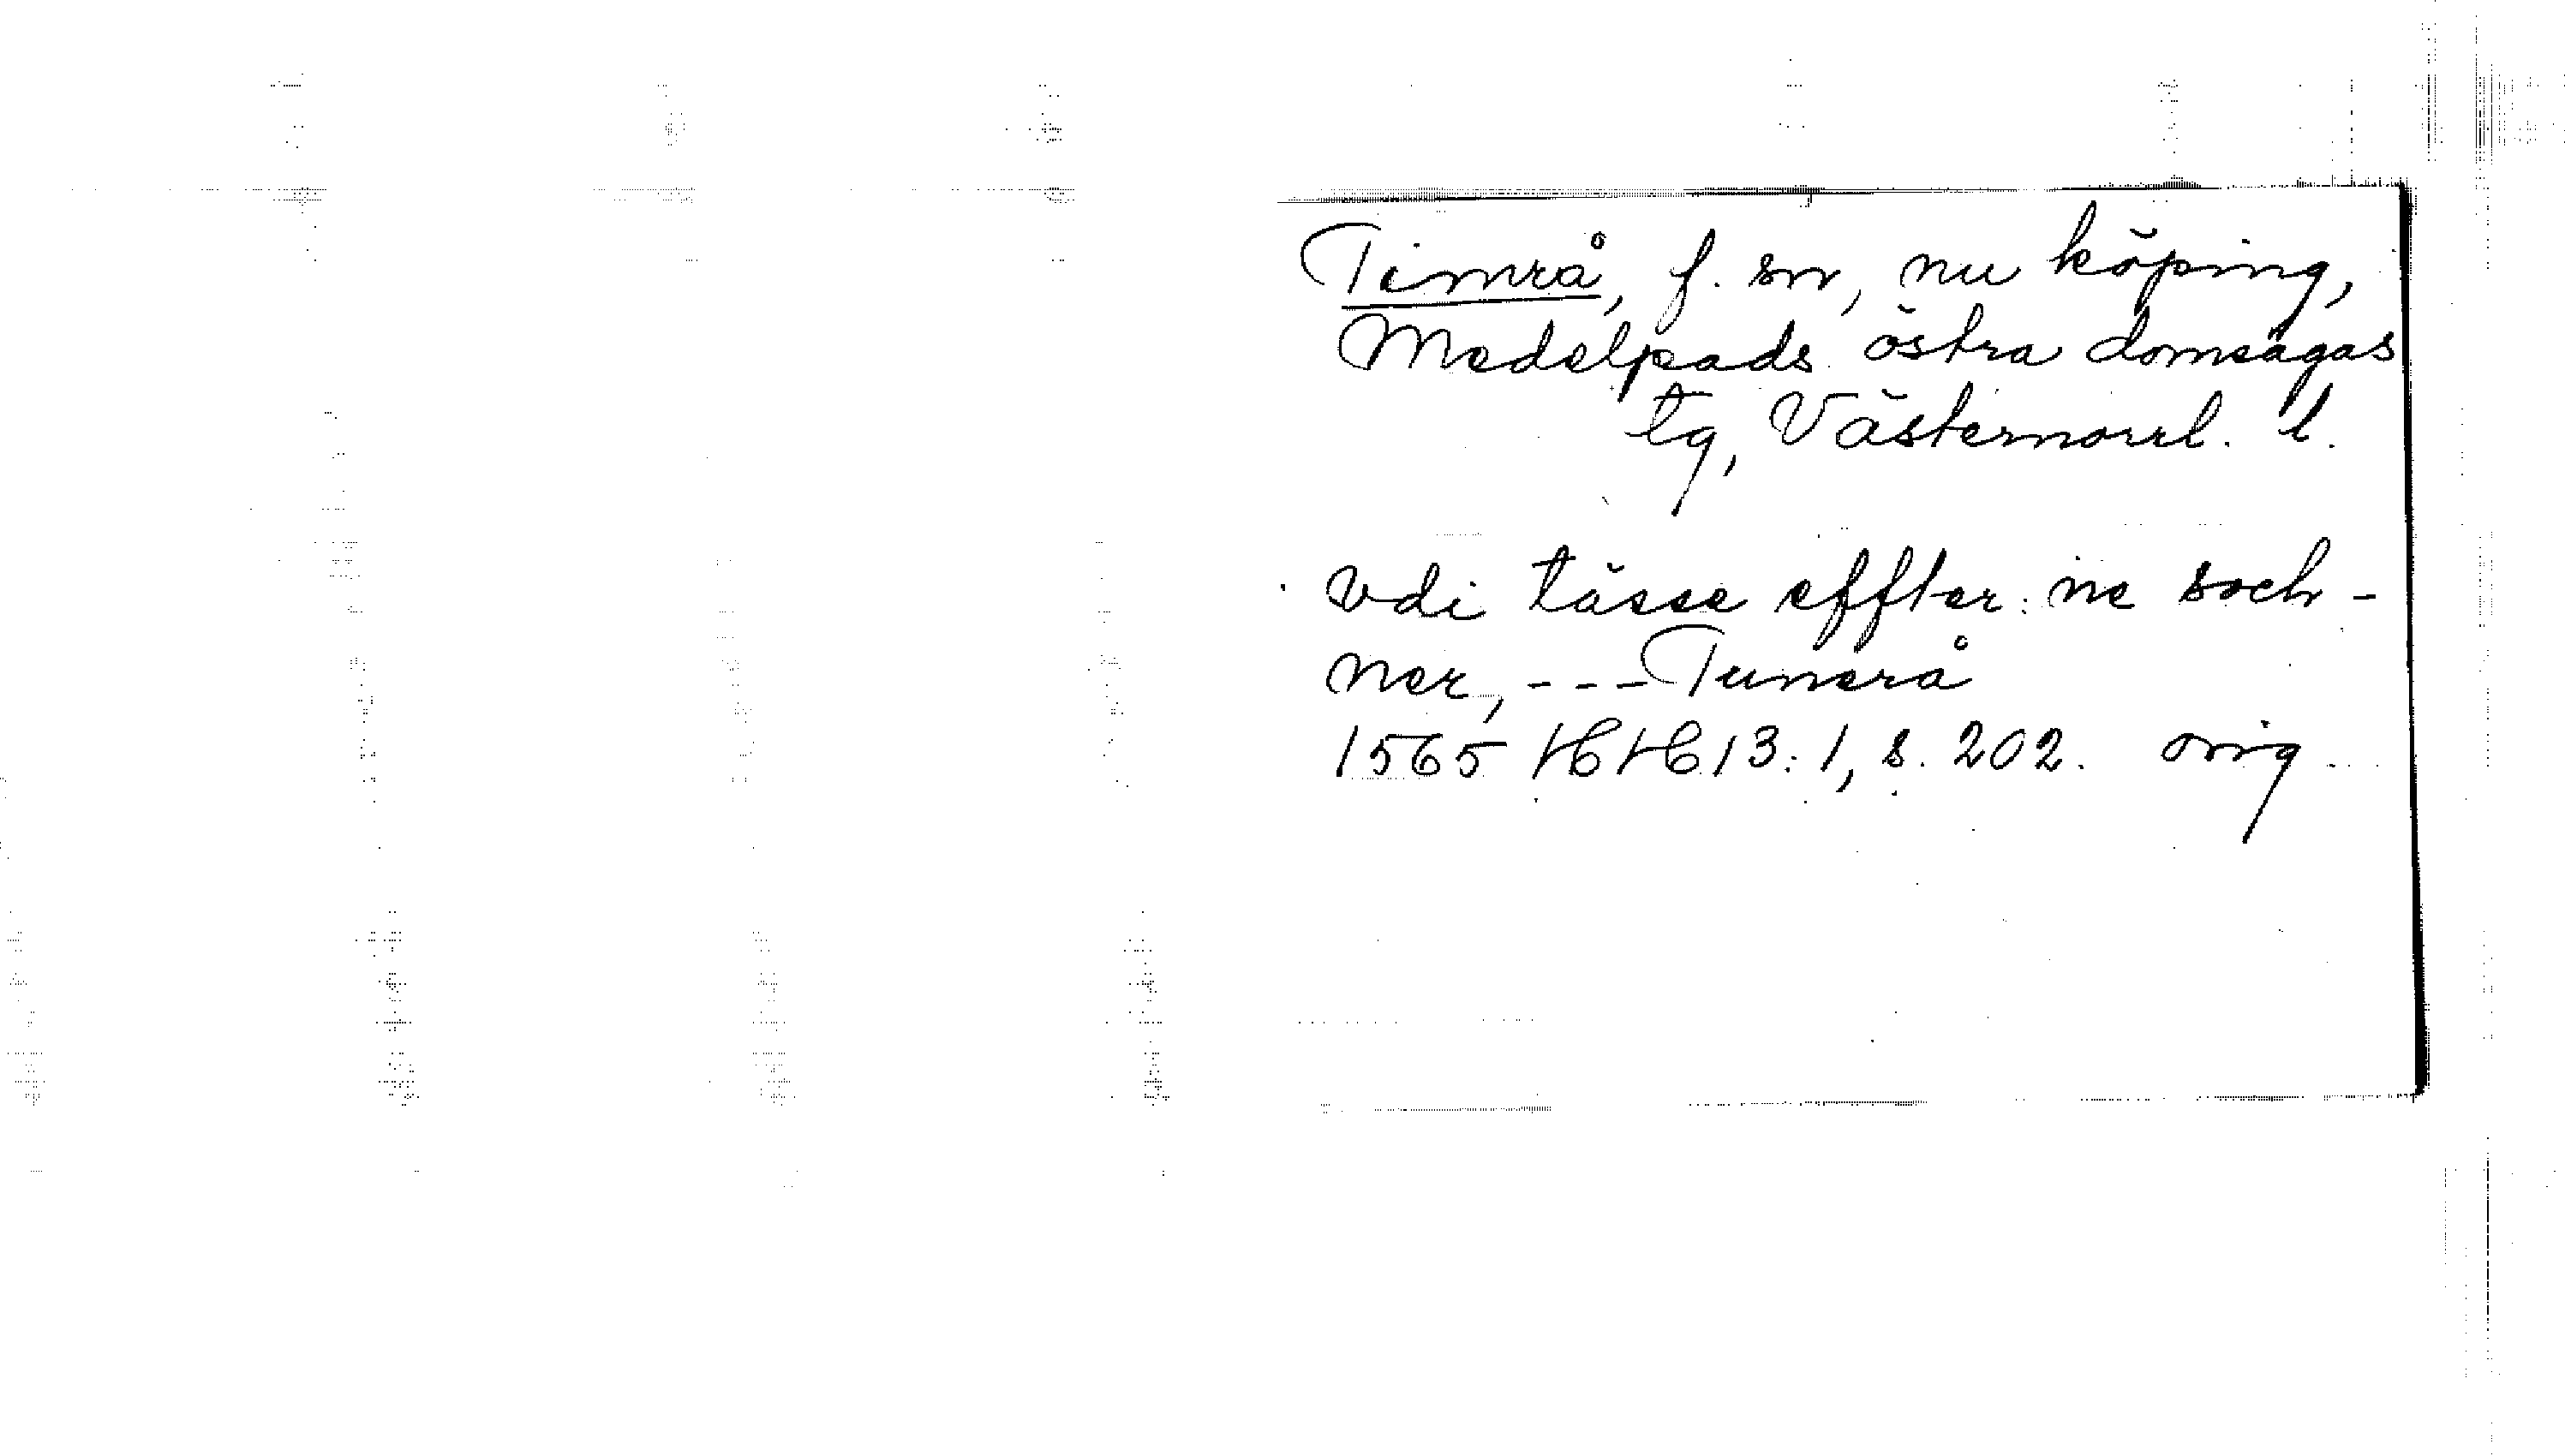 Timrå, f. sn, nu köping,
Medelpads östra domsagas
tg, Västernorrl. l.
vdi tässe effter: ne soch-
ner, --- Tunerå
1565 HH 13:1, s. 202. orig